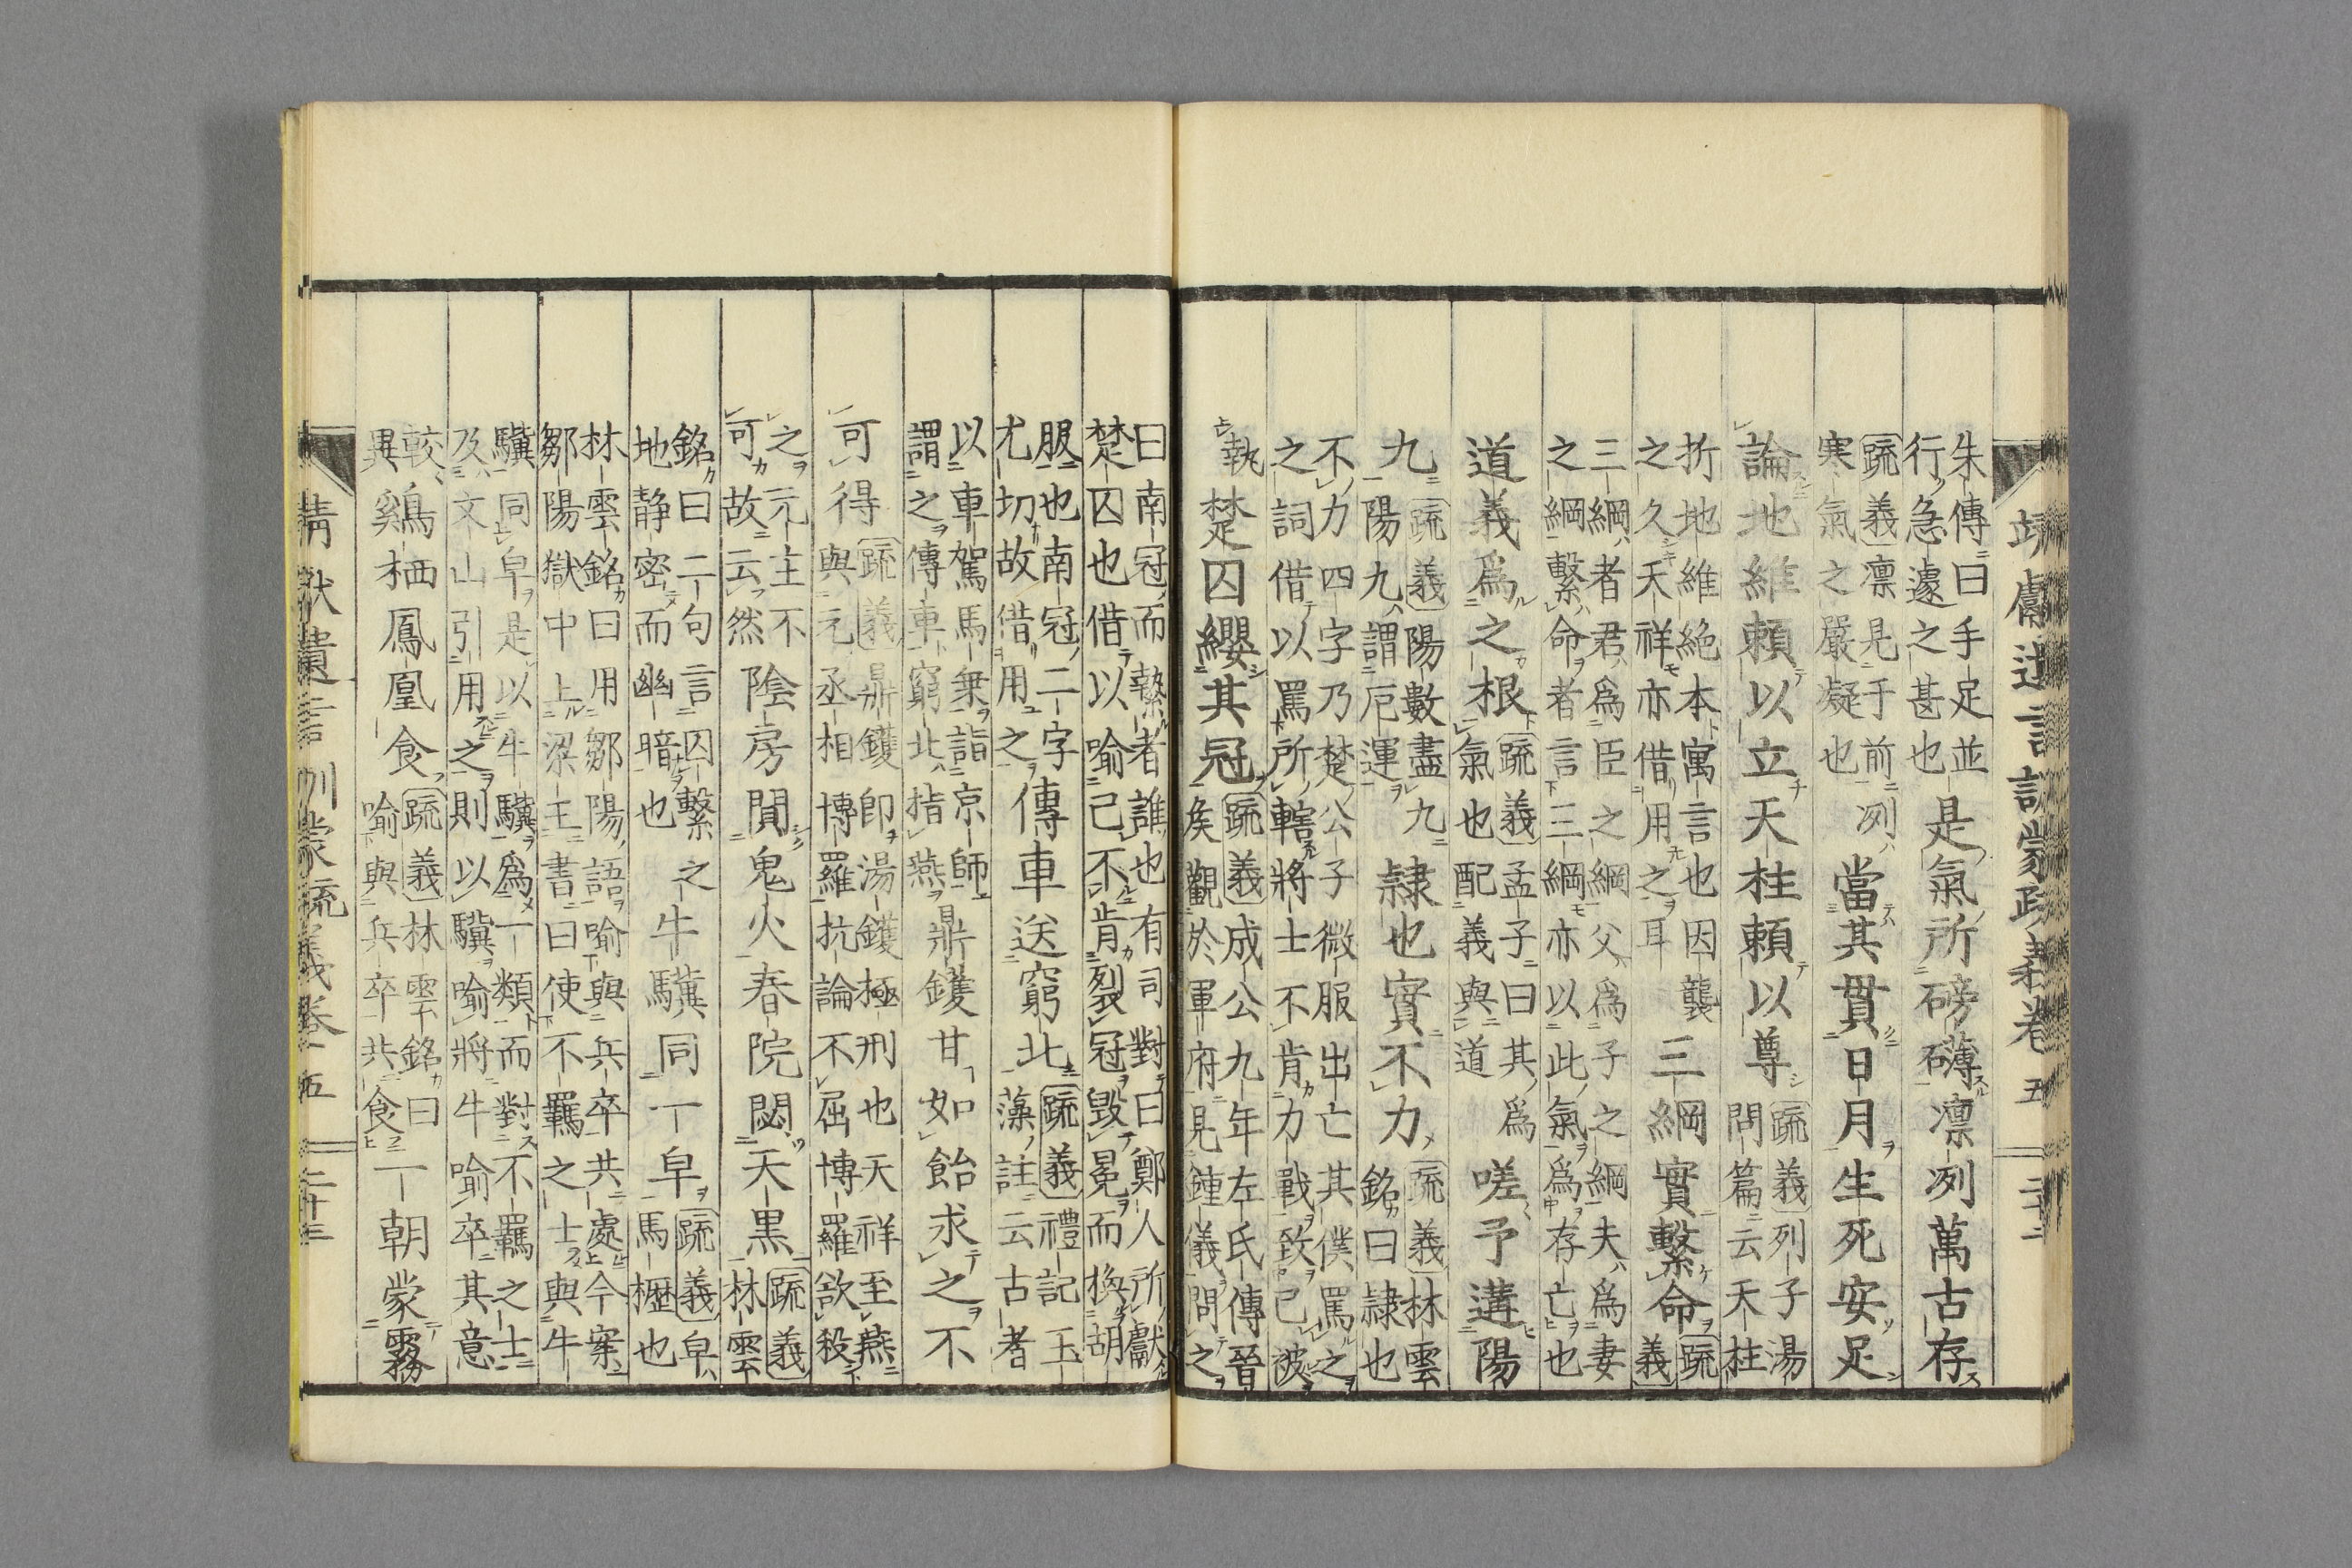 靖獻遺言訓蒙疏義卷五 二十二
朱傳曰手足並
行急遽之甚也
是氣所磅礴凛冽萬古存
疏義凛見于前冽
寒氣之嚴凝也
當其貫日月生死安足
論地維頼以立天柱頼以尊
疏義列子湯
問篇云天柱
折地維絶本寓言也因襲
之久天祥亦借用之耳
三綱實繫命
疏
義
三綱者君爲臣之綱父爲子之綱夫爲妻
之綱繫命者言三綱亦以此氣爲存亡也
道義爲之根
疏義孟子曰其爲
氣也配義與道
嗟予遘陽
九
疏義陽數盡九
陽九謂厄運
隷也實不力
疏義林雲
銘曰隷也
不力四字乃楚公子微服出亡其僕罵之
之詞借以罵所轄將士不肯力戰致己被
執楚囚纓其冠
疏義成公九年左氏傳晉
矦觀於軍府見鍾儀問之
曰南冠而縶者誰也有司對曰鄭人所獻
楚囚也借以喻己不肯裂冠毀冕而換胡
服也南冠二字
尤切故借用之
傳車送窮北
疏義禮記玉
藻註云古者
以車駕馬乘詣京師
謂之傳車窮北指燕
鼎鑊甘如飴求之不
可得
疏義鼎鑊卽湯鑊極刑也天祥至燕
與元丞相博羅抗論不屈博羅欲殺
之元主不
可故云然
陰房闃鬼火春院閟天黒
疏義
林雲
銘曰二句言囚繫之
地静密而幽暗也
牛驥同一皁
疏義皁
馬櫪也
林雲銘曰用鄒陽語喻與兵卒共處今案
鄒陽獄中上梁王書曰使不羈之士與牛
驥同皁是以牛驥爲一類而對不羈之士
及文山引用之則以驥喻將牛喻卒其意
較
異
鷄栖鳳凰食
疏義林雲銘曰
喻與兵卒共食
一朝蒙霧
靖獻遺言訓蒙疏義卷五 二十三